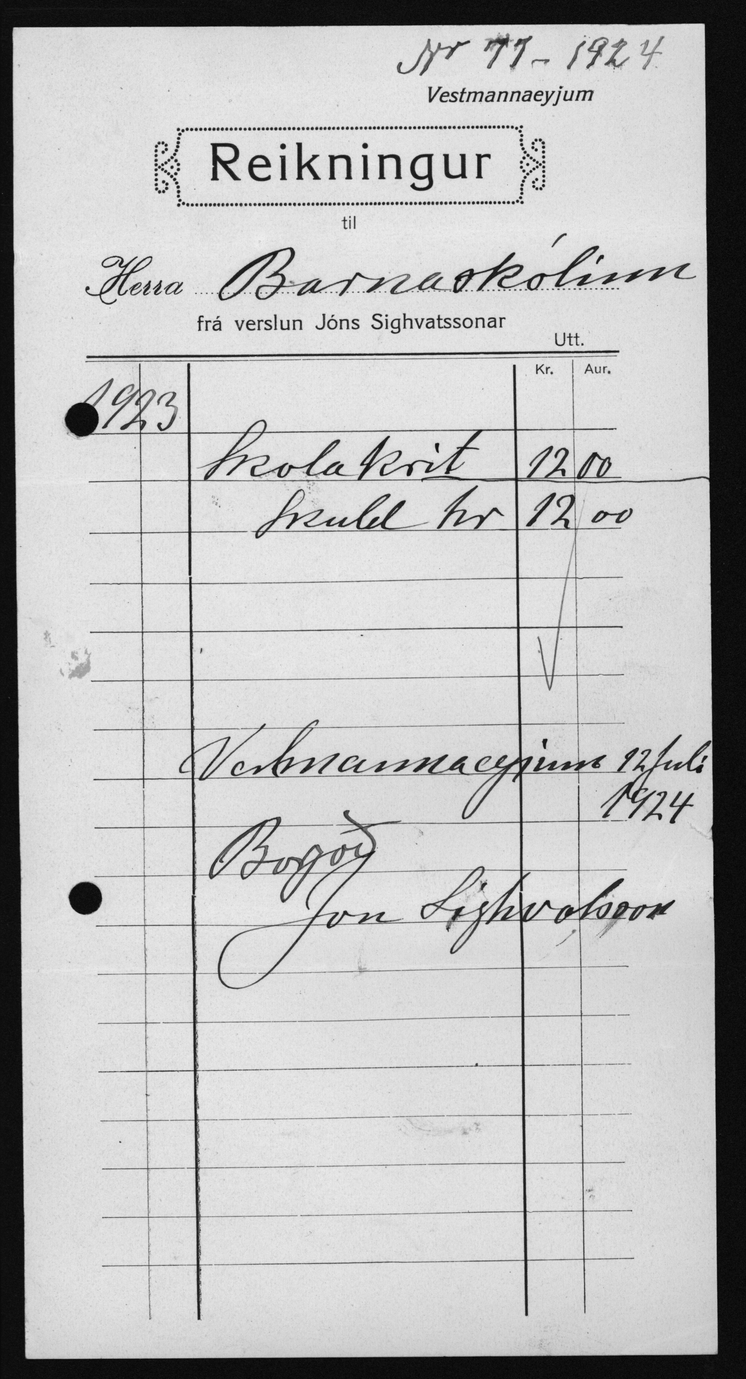 Nr 77 - 1924
Vestmannaeyjum
Reikningur
til
Herra Barnaskólinn
frá verslun Jóns Sighvatssonar
Utt.
Kr. Aur.
1923
Skolakrit 12 00
Skuld kr 12 00
Vestmannaeyjum 12 Juli
1924
Borgað
Jon Sighvatsson